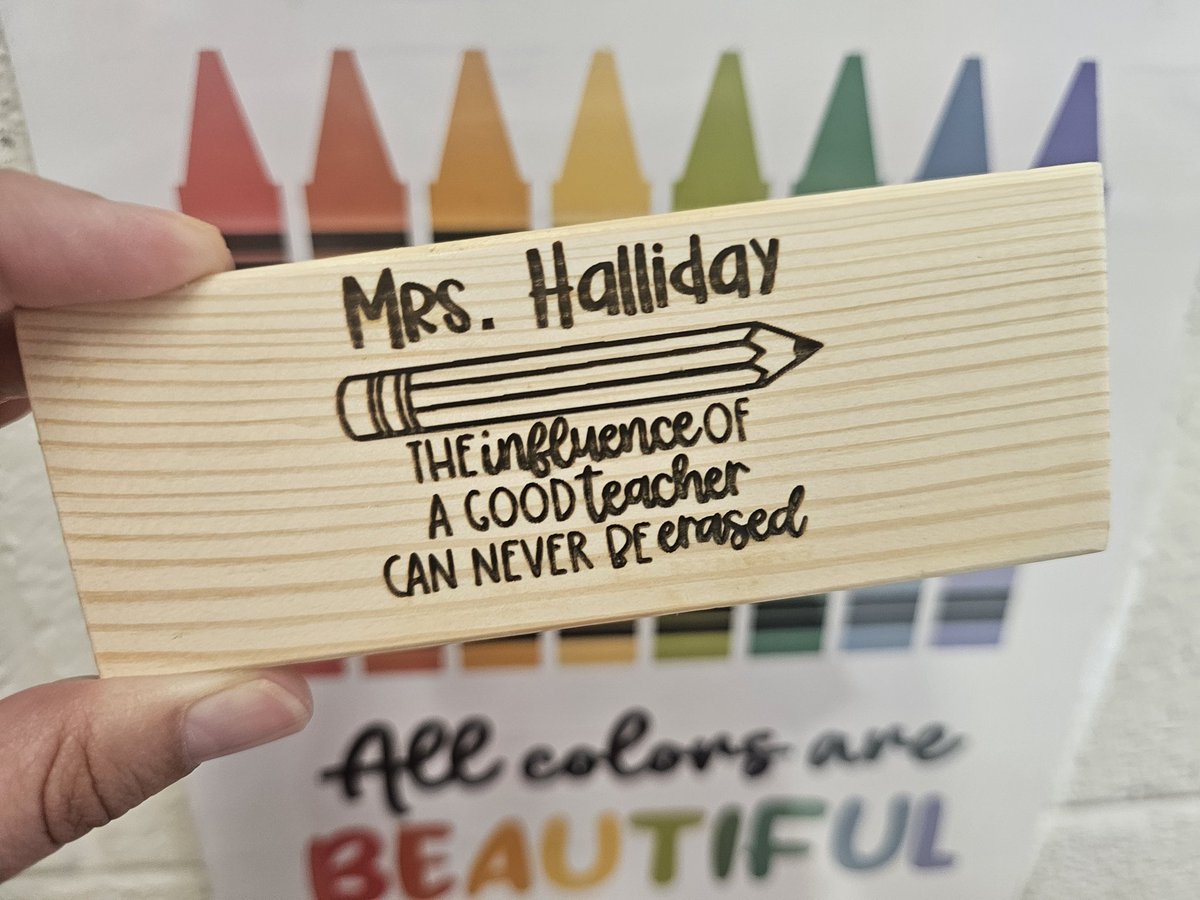 Mrs. Halliday
THE influence OF
A GOOD teacher
CAN NEVER BE erased
All colors are
BEAUTIFUL